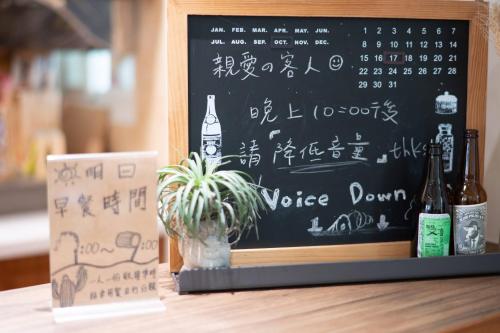 JAN. FEB. MAR. APR. MAY. JUN.
JUL. AUG. SEP. OCT. NOV. DEC.
1 2 3 4 5 6 7
8 9 10 11 12 13 14
15 16 17 18 19 20 21
22 23 24 25 26 27 28
29 30 31
親愛の客人
晚上10:00後
請降低音量 thks
Voice Down
明日
早餐時間
:00~ :00